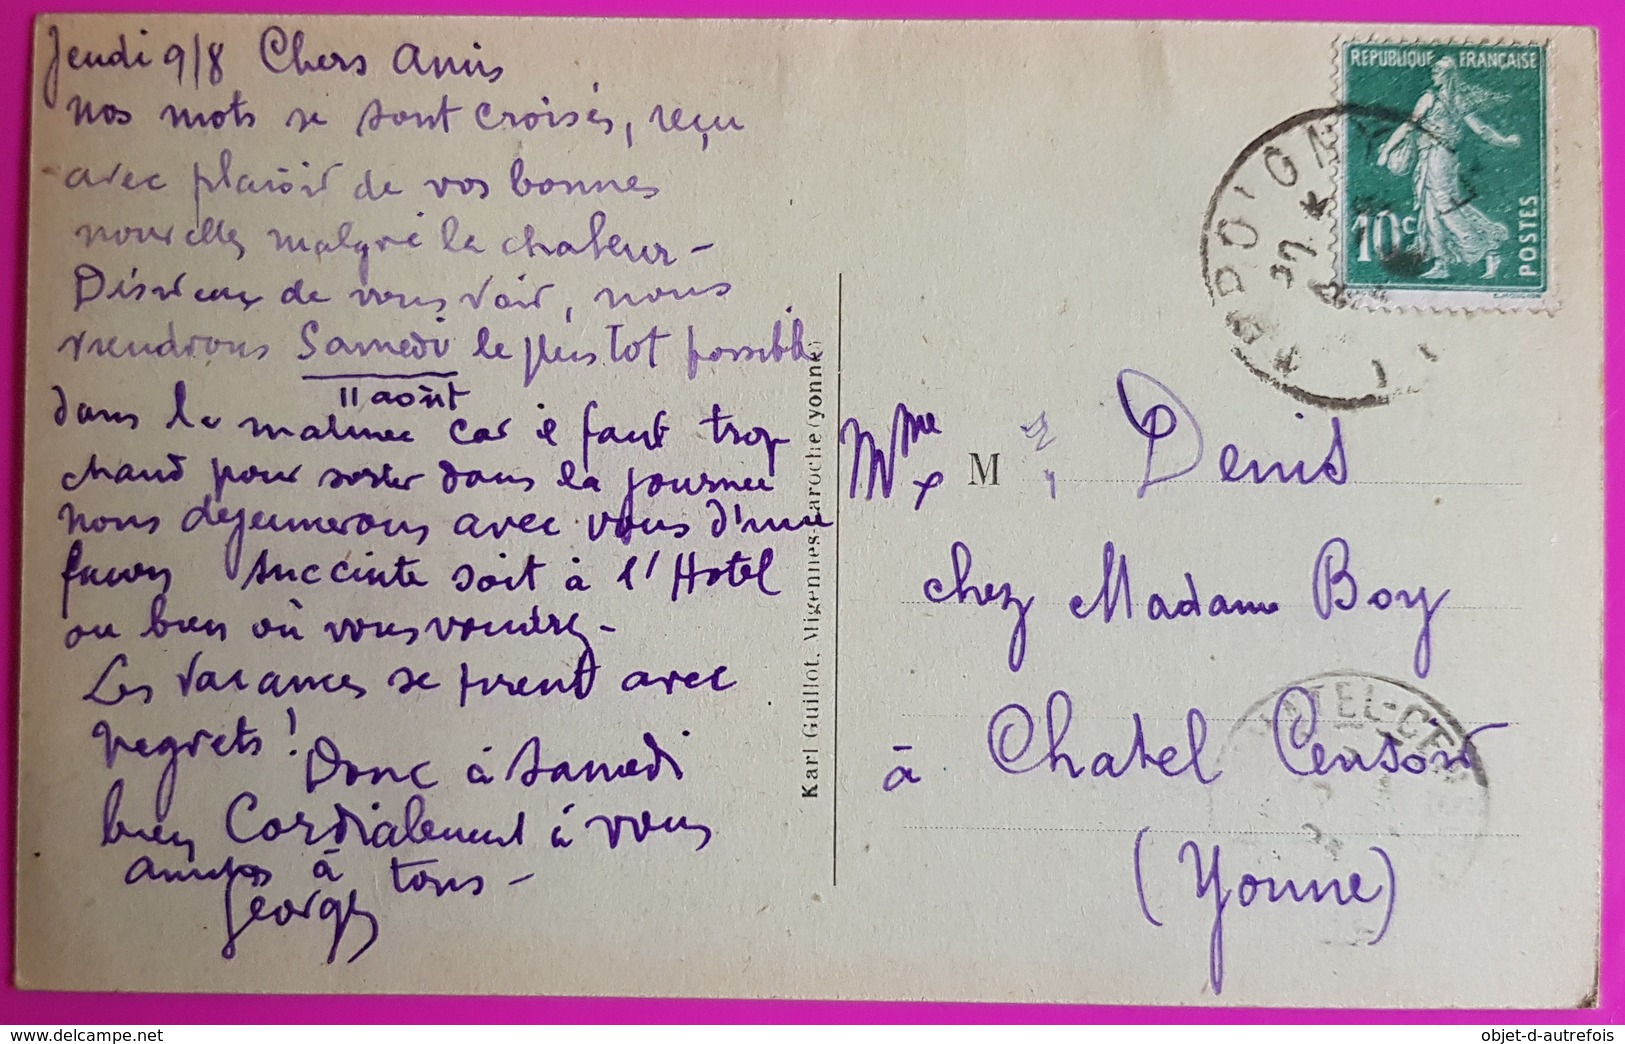 Jeudi 9/8 Chers Amis
nos mots se sont croisés, reçu
avec plaisir de vos bonnes
nouvelles malgré la chaleur -
Désireux de vous voir, nous
viendrons Samedi le plus tot possible
11 août
dans la matinée car il fait trop
chaud pour sortir dans la journée
nous dejeunerons avec vous d'une
façon succinte soit à l'Hotel
ou bien où vous voudrez -
Les vacances se tirent avec
regrets !
Donc à Samedi
bien Cordialement à vous
amitiés à tous -
Georges
Karl Guillot, Migennes-Laroche (yonne)
REPUBLIQUE FRANÇAISE
10c
POSTES
Mme & M Denis
chez Madame Boy
à Chatel Censoir
(Yonne)
CHATEL-CENSOIR
objet-d-autrefois